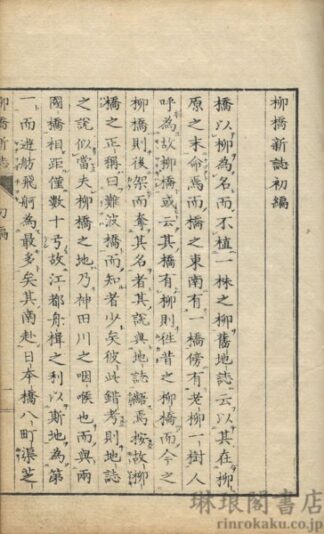 柳橋新誌初編
橋以柳為名而不植一株之柳舊地誌云以其在柳
原之末命焉而橋之東南有一橋傍有老柳一樹人
呼為故柳橋或云其橋有柳則徃昔之柳橋而今之
柳橋則後架而奪其名者其說與地誌齟焉按故柳
橋之正稱曰難波橋而知者少矣彼此錯考則地誌
之說似當夫柳橋之地乃神田川之咽喉也而與兩
國橋相距僅數十弓故江都舟楫之利以斯地為第
一而遊舫飛舸為最多矣其南赴日本橋八町渠芝
柳橋新誌 初編 一
琳琅閣書店
rinrokaku.co.jp